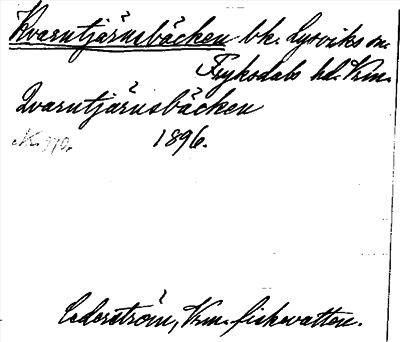 Kvarntjärnsbäcken bk. Lysviks sn.
Fryksdals hd. Vrm.
Qvarntjärnsbäcken
1896.
Cederström, Vrm. fiskevatten.